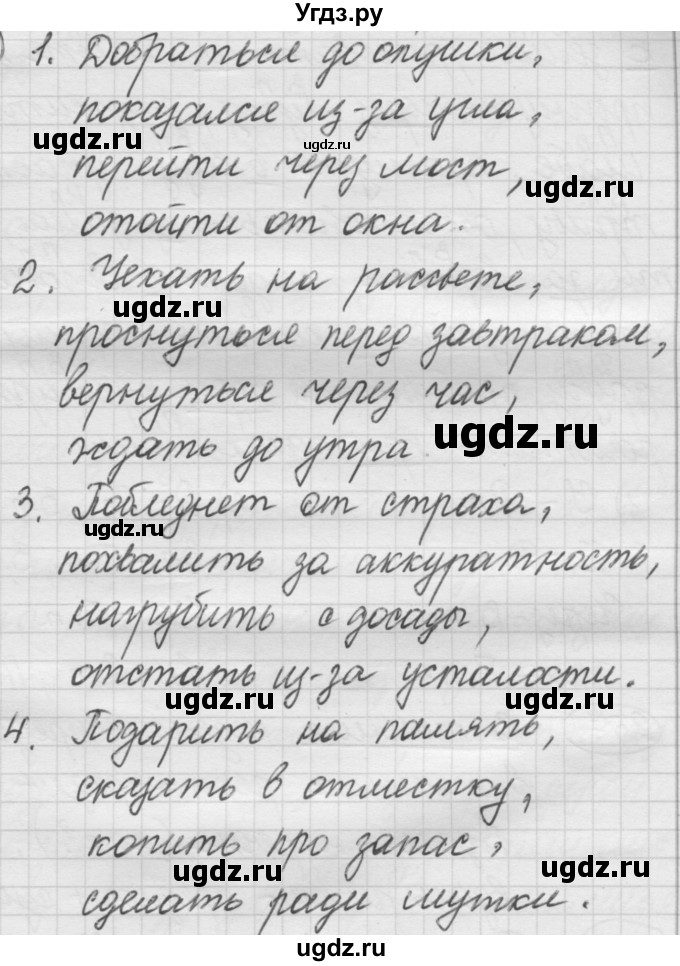 Угдз.ру
1. Добраться до опушки,
показался из-за угла,
ugdz.ru
ugdz.ru
перейти через мост,
ugdz.ru
отойти от окна.
2. Уехать на рассвете,
ugdz.ru
проснуться перед завтраком,
вернуться через час,
ждать до утра
ugdz.ru
3. Побледнет от страха,
ugdz.ru
похвалить за аккуратность,
нагрубить с досады,
отстать из-за усталости.
ugdz.ru
ugdz.ru
4. Подарить на память,
сказать в отместку,
ugdz.ru
копить про запас,
ugdz.ru
ugdz.ru
сделать ради шутки.
ugdz.ru